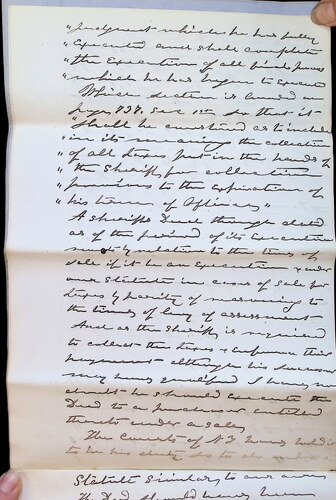 "Judgment which he has fully
"Executed and shall complete
"the Execution of all such process
"which he has begun to Execute
Which section is limited in
page 737. Sec 1st so that it
"Shall be construed as to include
"in its meaning the collection
"of all Taxes put in the hands of
"the Sheriff for collection
"previous to the expiration of
"his term of Office"
A Sheriffs Deed though dated
as of the period of its execution
by relation to the time of
sale if it be an Execution & under
our Statute in cases of sale for
Taxes by parity of reasoning to
the time of levy of assessment
And as the Sheriff is required
to collect the Taxes & enforce their
payment although his successor
may have qualified I have no
doubt he should execute the
Deed to a purchaser entitled
thereto under a sale
The Courts of N.J. have held it
to be his duty so to do
Statute similar to our own
Deed should have been